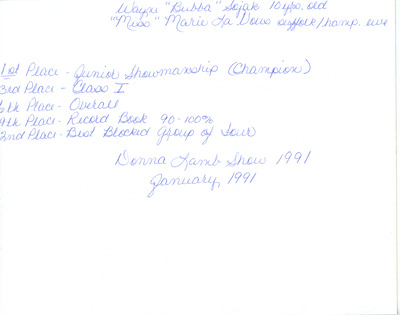 Wayne "Bubba" Sojak 10 yrs. old
"Miss" Marie La Vous suffolk/hamp. ewe
1st Place - Junior Showmanship (Champion)
3rd Place - Class I
6th Place - Overall
4th Place - Record Book 90-100%
2nd Place - Best Blocked Group of Four
Donna Lamb Show 1991
January, 1991